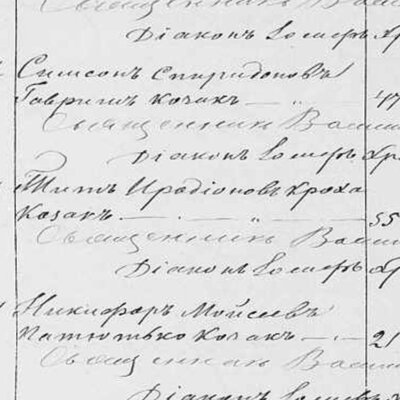 Священникъ Васи
Діаконъ
Симеонъ Спиридоновъ
Гавришъ козакъ — „ 47
Священникъ Васи
Діаконъ
Титъ Иродіоновъ Кроха
Козакъ — „ 55
Священникъ Васи
Діаконъ
Никифоръ Мойсеевъ
Патютько Козакъ — 21
Священникъ Васи
Діаконъ